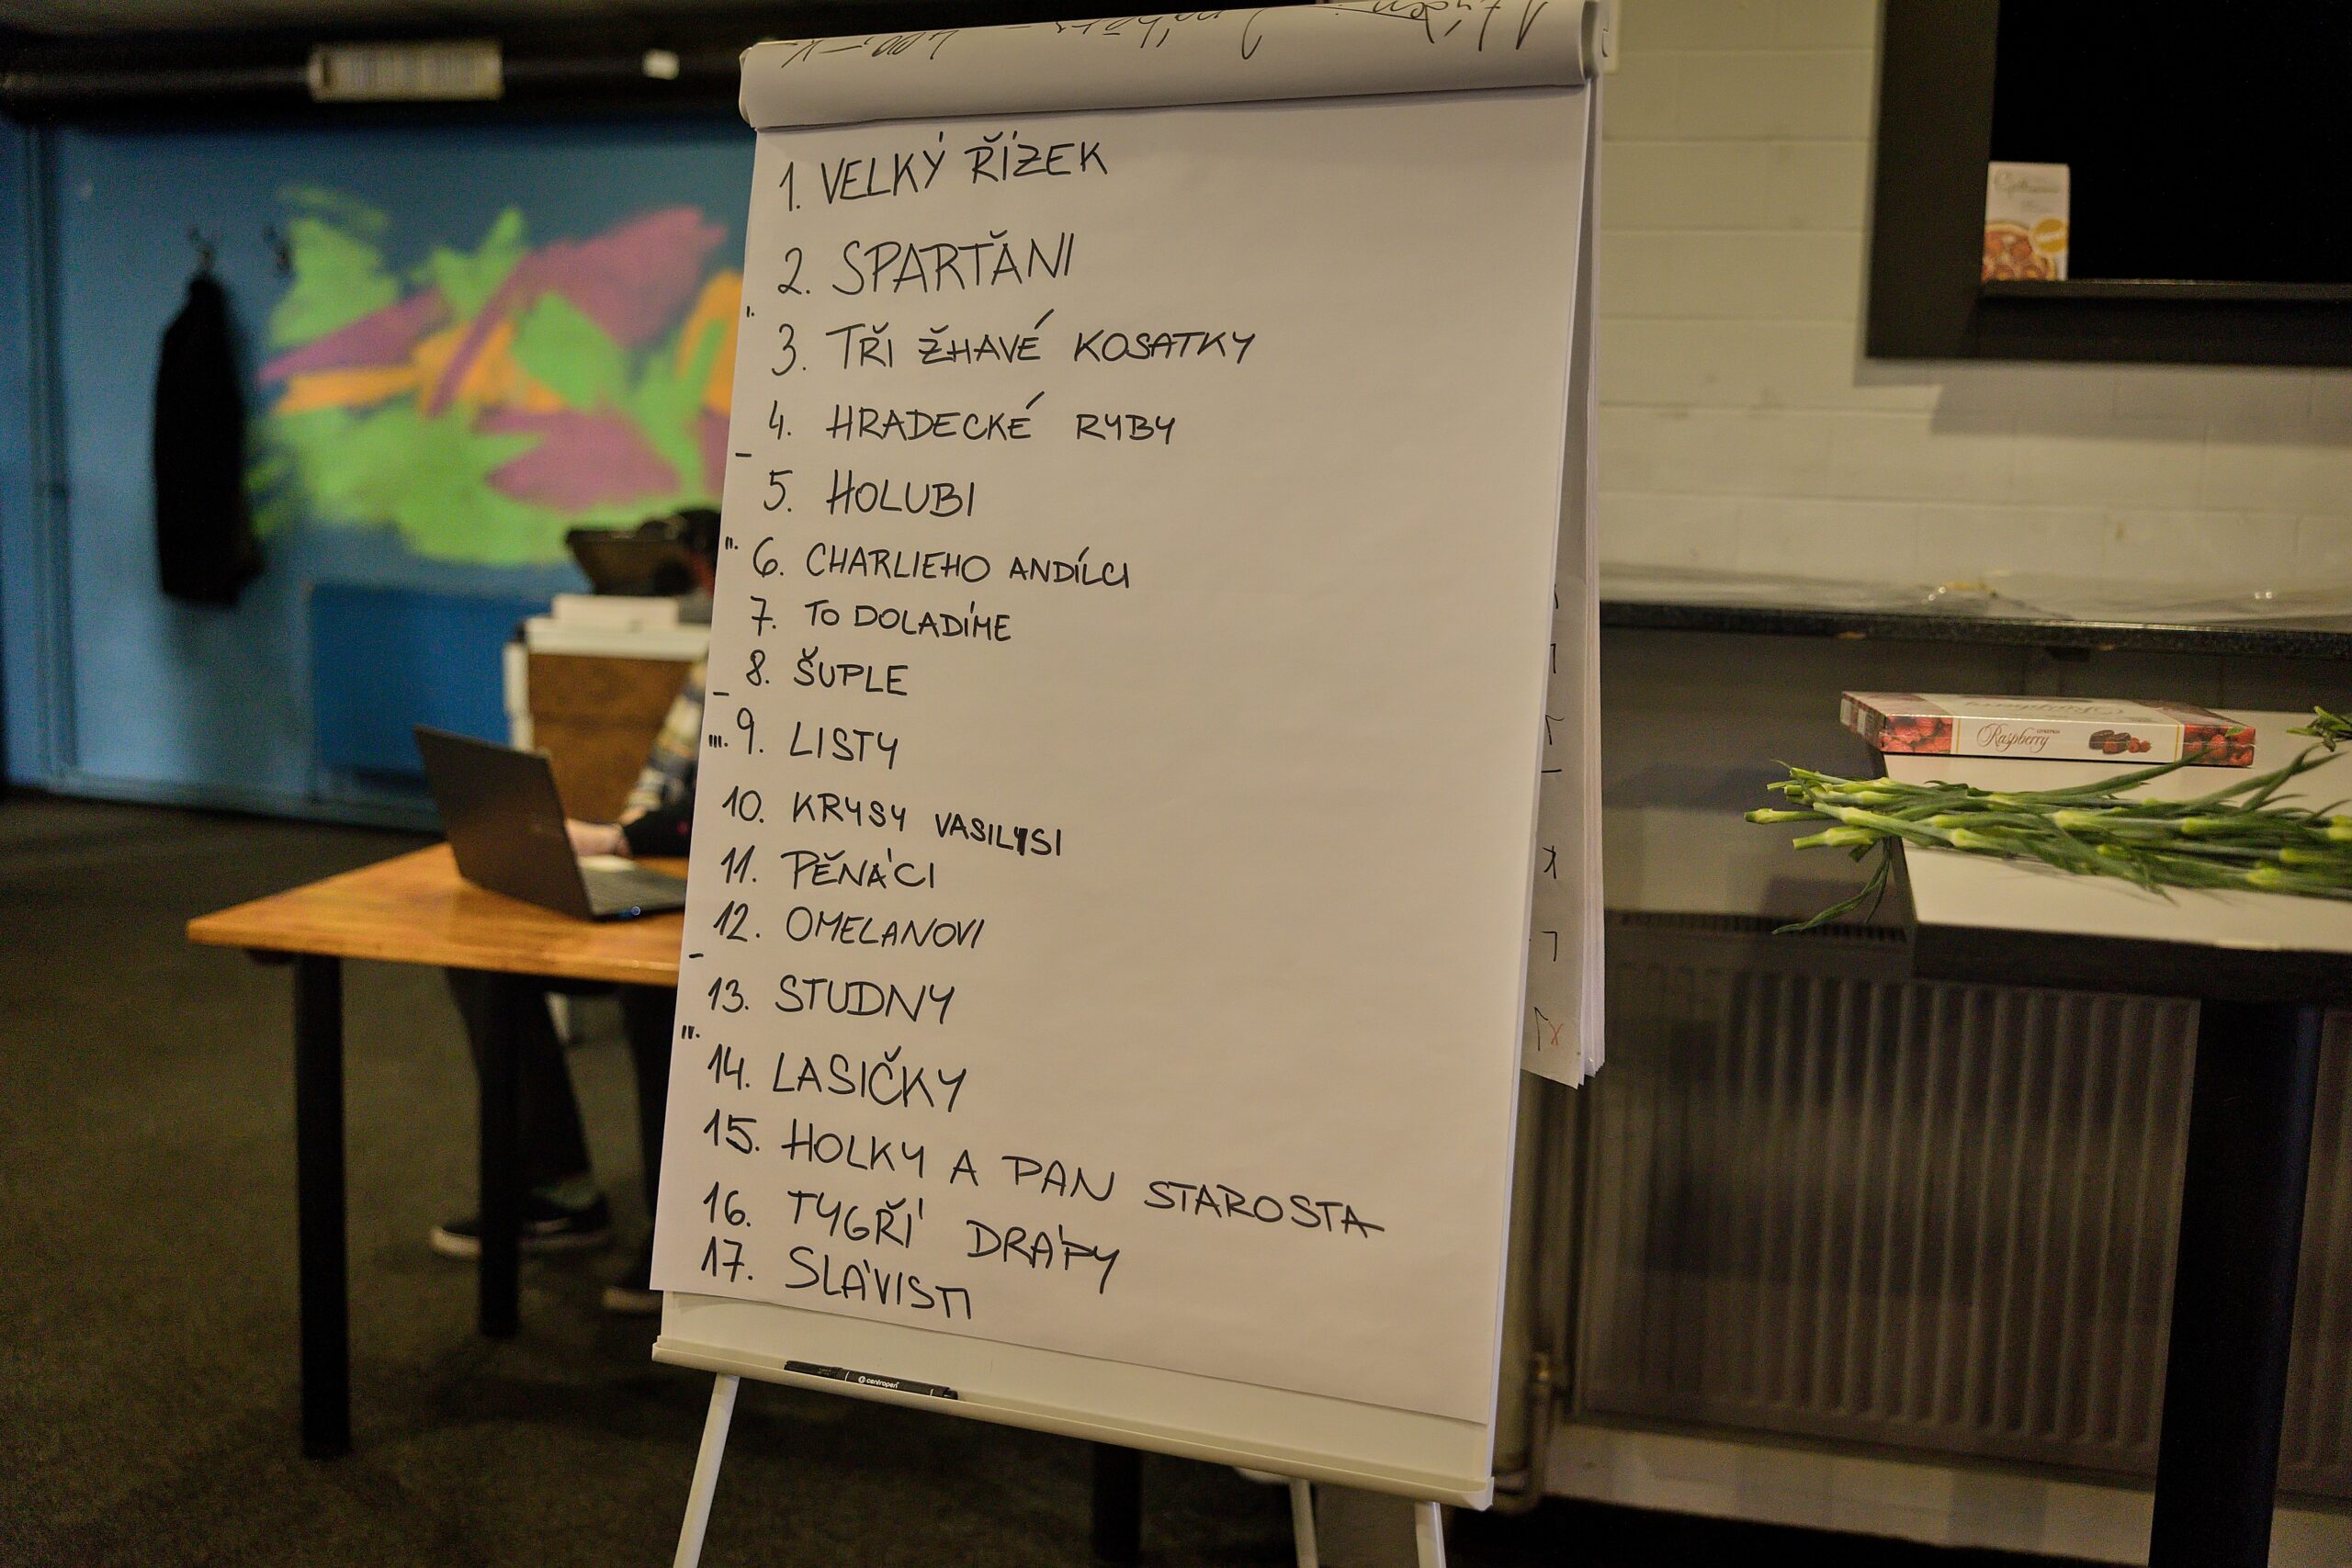 1. VELKÝ ŘÍZEK
2. SPARŤÁNI
3. TŘI ŽHAVÉ KOSATKY
4. HRADECKÉ RYBY
5. HOLUBI
6. CHARLIEHO ANDÍLCI
7. TO DOLADÍME
8. ŠUPLE
9. LISTY
10. KRYSY VASILYSI
11. PĚNÁCI
12. OMELANOVI
13. STUDNY
14. LASIČKY
15. HOLKY A PAN STAROSTA
16. TYGŘÍ DRÁPY
17. SLÁVISTI
centropen
Raspberry